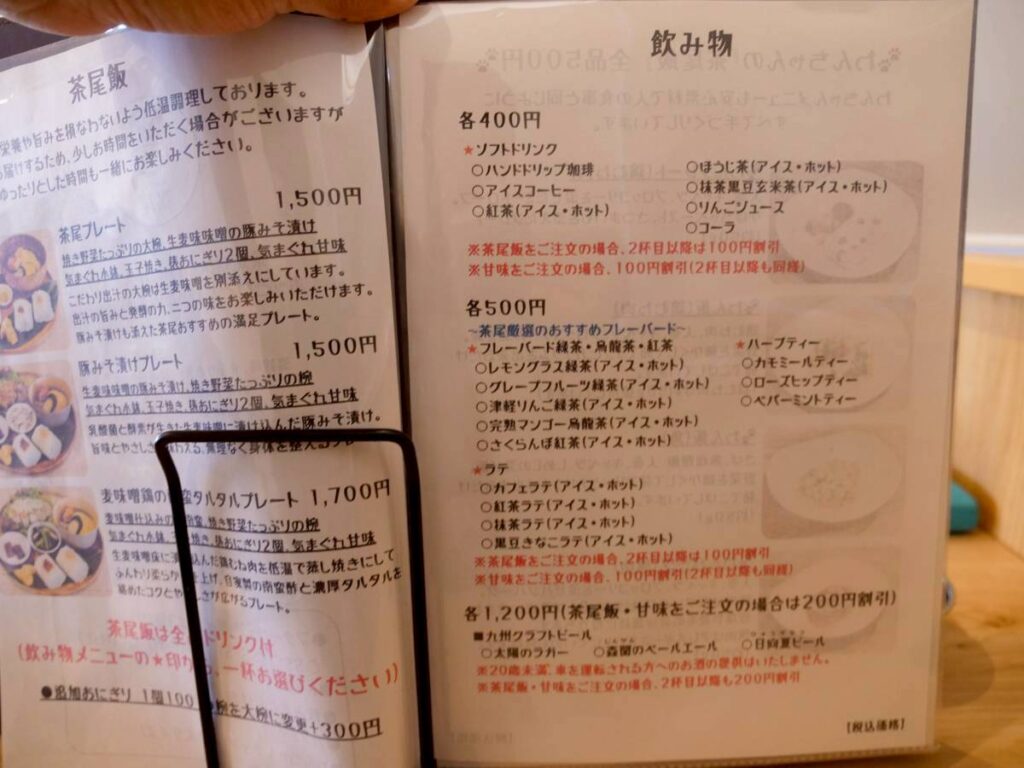 茶尾飯
栄養や旨みを損なわないよう低温調理しております。
お届けするため、少しお時間をいただく場合がございますが
ゆったりとした時間も一緒にお楽しみください。
1,500円
茶尾プレート
焼き野菜たっぷりの大椀、生麦味噌の豚みそ漬け
気まぐれ小鉢、玉子焼き、俵おにぎり2個、気まぐれ甘味
こだわり出汁の大椀は生麦味噌を別添えにしています。
出汁の旨みと発酵の力、二つの味をお楽しみいただけます。
豚みそ漬けも添えた茶尾おすすめの満足プレート。
1,500円
豚みそ漬けプレート
生麦味噌の豚みそ漬け、焼き野菜たっぷりの椀
気まぐれ小鉢、玉子焼き、俵おにぎり2個、気まぐれ甘味
乳酸菌と酵素が生きた生麦味噌に漬け込んだ豚みそ漬け。
旨味とやさしさ 味わえる、無理なく身体を整える
麦味噌鶏の 蛮タルタルプレート 1,700円
麦味噌仕込みの 南蛮、焼き野菜たっぷりの椀
気まぐれ小鉢、玉 焼き、俵おにぎり2個、気まぐれ甘味
生麦味噌床に 込んだ鶏むね肉を低温で蒸し焼きにして
ふんわり柔らか 上げ、自家製の南蛮酢と濃厚タルタルを
絡めたコクとや さが広がるプレート。
茶尾飯は全 ドリンク付
(飲み物メニューの★印から、一杯お選びください)
●追加おにぎり 1個100 椀を大椀に変更+300円
飲み物
各400円
★ソフトドリンク
○ハンドドリップ珈琲
○アイスコーヒー
○紅茶(アイス・ホット)
○ほうじ茶(アイス・ホット)
○抹茶黒豆玄米茶(アイス・ホット)
○りんごジュース
○コーラ
※茶尾飯をご注文の場合、2杯目以降は100円割引
※甘味をご注文の場合、100円割引(2杯目以降も同様)
各500円
~茶尾厳選のおすすめフレーバード~
★フレーバード緑茶・烏龍茶・紅茶
○レモングラス緑茶(アイス・ホット)
○グレープフルーツ緑茶(アイス・ホット)
○津軽りんご緑茶(アイス・ホット)
○完熟マンゴー烏龍茶(アイス・ホット)
○さくらんぼ紅茶(アイス・ホット)
★ハーブティー
○カモミールティー
○ローズヒップティー
○ペパーミントティー
★ラテ
○カフェラテ(アイス・ホット)
○紅茶ラテ(アイス・ホット)
○抹茶ラテ(アイス・ホット)
○黒豆きなこラテ(アイス・ホット)
※茶尾飯をご注文の場合、2杯目以降は100円割引
※甘味をご注文の場合、100円割引(2杯目以降も同様)
各1,200円(茶尾飯・甘味をご注文の場合は200円割引)
■九州クラフトビール
○太陽のラガー ○森閑のペールエール ○日向夏ビール
※20歳未満、車を運転される方へのお酒の提供はいたしません。
※茶尾飯・甘味をご注文の場合、2杯目以降も200円割引
【税込価格】